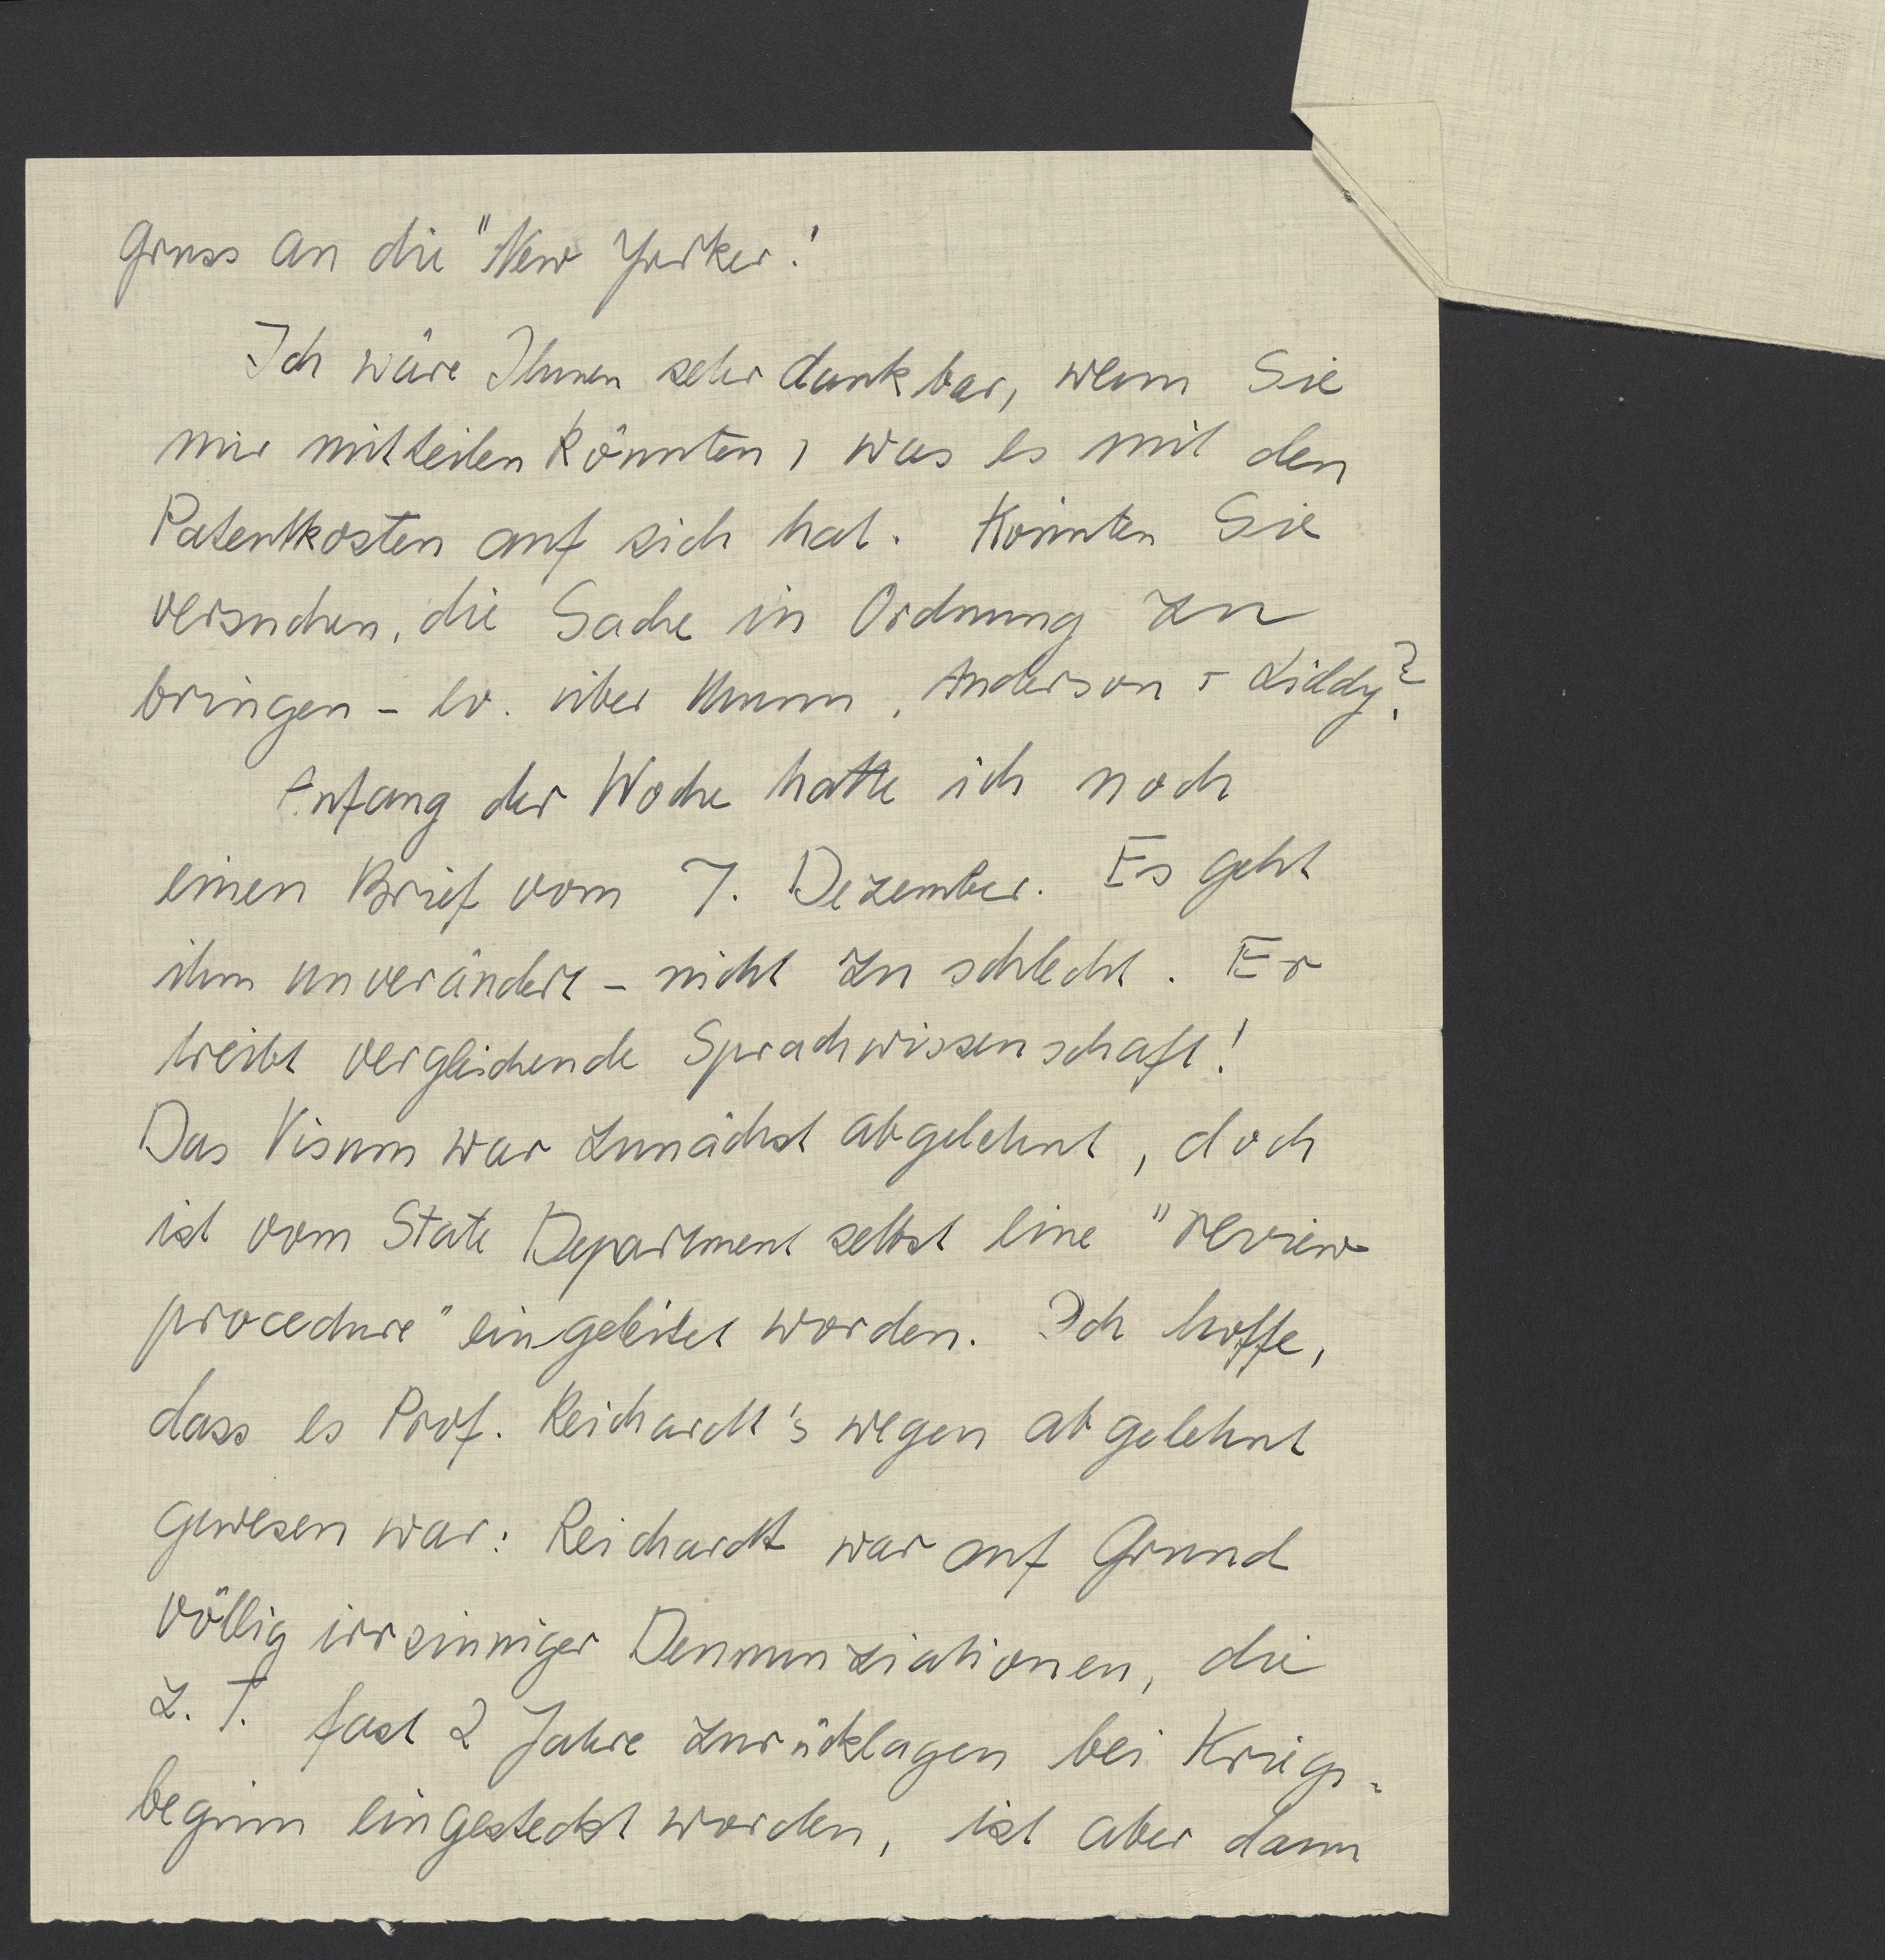 Gruss an die "New Yorker!
Ich wäre Ihnen sehr dankbar, wenn Sie
mir mitteilen könnten, was es mit den
Patentkosten auf sich hat. Könnten Sie
versuchen, die Sache in Ordnung zu
bringen - ev. über Munn, Anderson + Liddy?
Anfang der Woche hatte ich noch
einen Brief vom 7. Dezember. Es geht
ihm unverändert - nicht zu schlecht. Er
treibt vergleichende Sprachwissenschaft!
Das Visum war zunächst abgelehnt, doch
ist vom State Department selbst eine "review
procedure" eingeleitet worden. Ich hoffe,
dass es Prof. Reichardt's wegen abgelehnt
gewesen war: Reichardt war auf Grund
völlig irrsinniger Denunziationen, die
z. T. fast 2 Jahre zurücklagen bei Kriegs-
beginn eingesteckt worden, ist aber dann